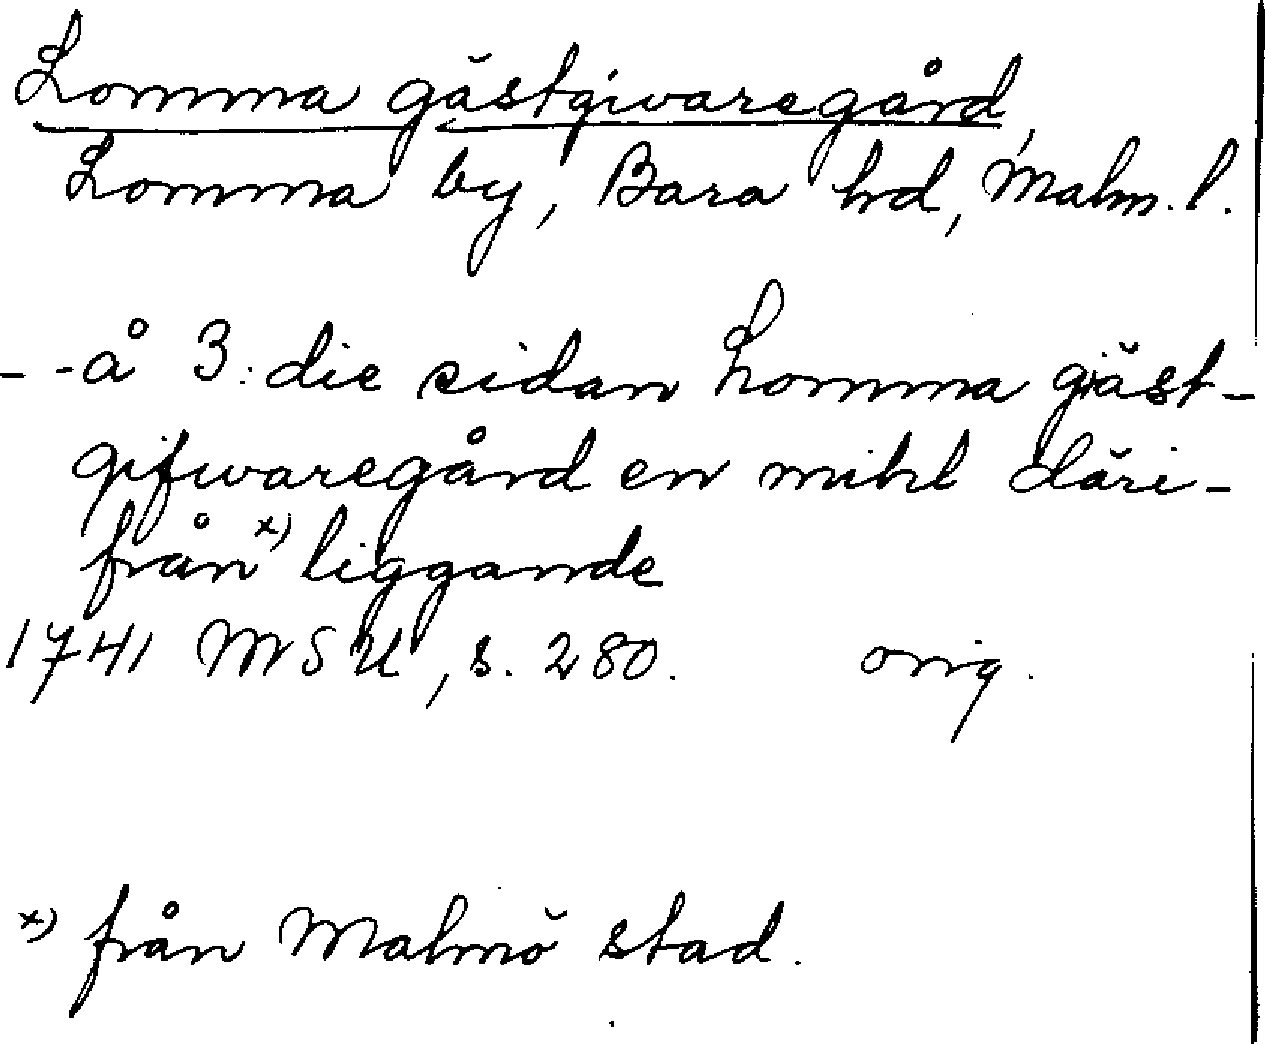 Lomma gästgivaregård,
Lomma by, Bara hd, Malm. l.
- - å 3:die sidan Lomma giäst-
gifwaregård en mihl däri-
från x) liggande
1741 MSU, s. 280. orig.
x) från Malmö stad.